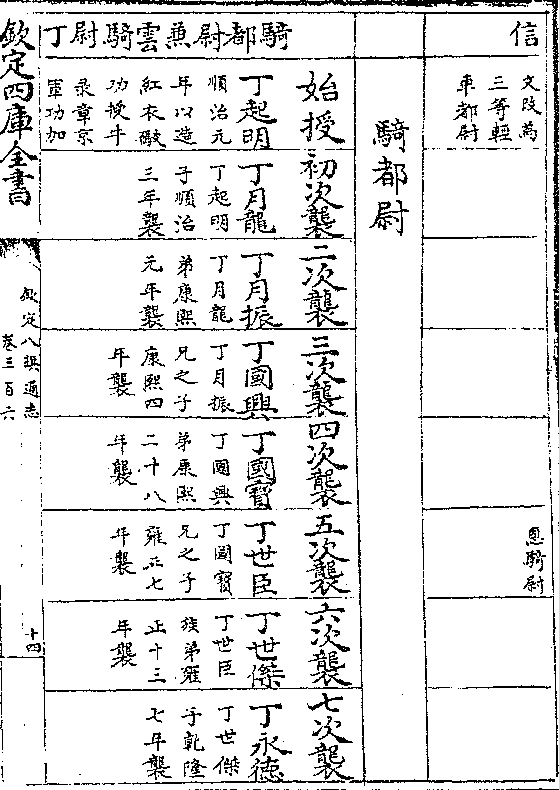 信
文改為
三等輕
車都尉
恩騎尉
騎都尉
騎都尉兼雲騎尉丁
始授
丁起明
順治元
年以造
紅衣礮
功授牛
录章京
軍功加
初次襲
丁月龍
丁起明
子順治
三年襲
二次襲
丁月振
丁月龍
弟康熙
元年襲
三次襲
丁國興
丁月振
兄之子
康熙四
年襲
四次襲
丁國寶
丁國興
弟康熙
二十八
年襲
五次襲
丁世臣
丁國寶
兄之子
雍正七
年襲
六次襲
丁世傑
丁世臣
族弟雍
正十三
年襲
七次襲
丁永德
丁世傑
子乾隆
七年襲
欽定四庫全書
欽定八旗通志
卷三百六
十四